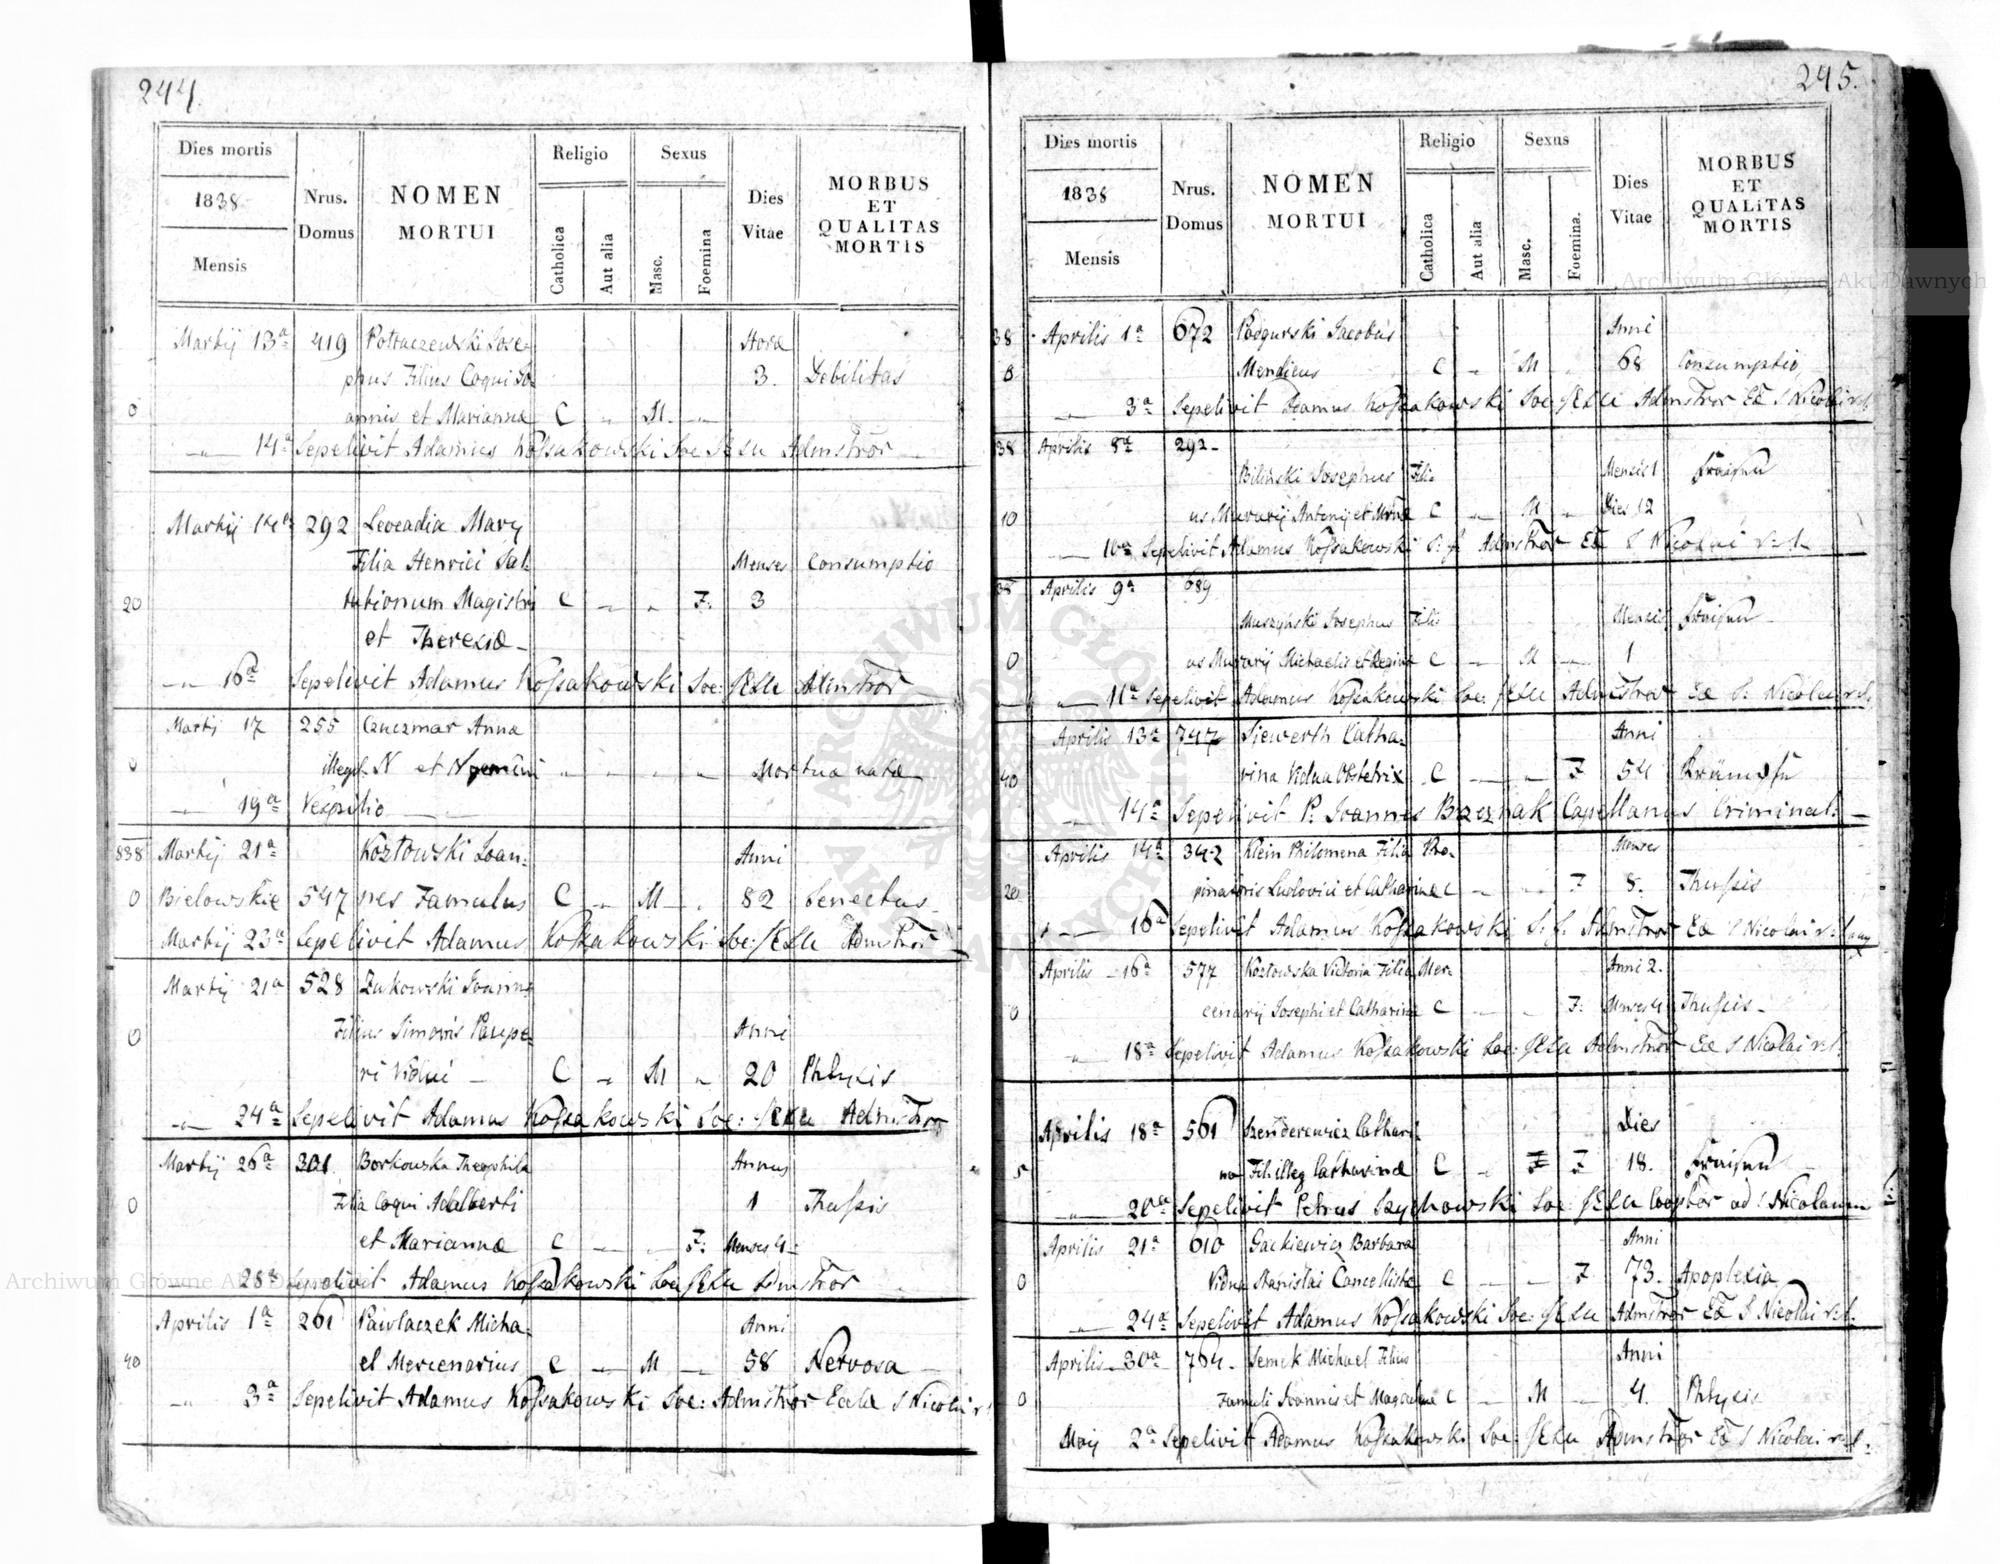 244.
Dies mortis
1838
Mensis
Nrus. Domus
NOMEN MORTUI
Religio
Catholica
Aut alia
Sexus
Masc.
Foemina
Dies Vitae
MORBUS
ET
QUALITAS
MORTIS
Martij 13a 419 Jose- Hora
phus Filius Coqui Jo- 3. Debilitas
0 annis et Mariannæ C „ M „
„ 14a Sepelivit Adamus Kossakowski Soc JESu Admstror
Martij 14a 292 Leocadia Mary
Filia Henrici Sal- Menses Consumptio
20 tationum Magistri C „ „ F: 3
et Theresiæ
„ 16a Sepelivit Adamus Kossakowski Soc: JESu Admstror
Martij 17 255 Czuczmar Anna
0 illegit. N et N „ „ „ „ Mortua nata
„ 19a Vespilio
838 Martij 21a Kozłowski Joan- Anni
0 Bielowskie 547 nes Famulus C „ M „ 82 Senectus
Martij 23a Sepelivit Adamus Kossakowski Soc: JESu Admstror
Martij 21a 528 Żukowski Joannes
0 Filius Simonis Paupe- Anni
ri Vidui C „ M „ 20 Phtysis
„ 24a Sepelivit Adamus Kossakowski Soc: JESu Admstror
Martij 26a 301 Borkowska Theophila Annus
0 Filia Coqui Adalberti 1 Thussis
et Mariannæ C „ „ F: Menses 4
„ 28a Sepelivit Adamus Kossakowski Soc JESu Admstror
Aprilis 1a 261 Pawlaczek Micha- Anni
40 el Mercenarius C „ M „ 58 Nervosa
„ 3a Sepelivit Adamus Kossakowski Soc: Admstror Eccle S Nicolai
245.
Dies mortis
1838
Mensis
Nrus. Domus
NOMEN MORTUI
Religio
Catholica
Aut alia
Sexus
Masc.
Foemina.
Dies Vitae
MORBUS
ET
QUALITAS
MORTIS
38 Aprilis 1a 672 Podgurski Jacobus Anni
Mendicus C „ M „ 68 Consumptio
„ 3a Sepelivit Adamus Kossakowski Soc JESu Admstror Eæ S Nicolai
38 Aprilis 8a 292
Biliński Josephus Fili- Mensis 1 Fraisen
10 us Murarij Antonij et C „ M „ Dies 12
„ 10a Sepelivit Adamus Kossakowski S: J. Admstror Eæ S Nicolai
38 Aprilis 9a 689
Muszyński Josephus Fili- Mensis Fraisen
0 us Murarij Michaelis et Reginæ C „ M „ 1
„ 11a Sepelivit Adamus Kossakowski Soc: JESu Admstror Eæ S: Nicolai
Aprilis 13a 747 Siewerth Catha- Anni
40 rina Vidua Obstetrix C „ „ F 54 Krämpfe
„ 14a Sepelivit P. Joannes Brzeznak Capellanus Criminal:
Aprilis 14a 342 Klein Philomena Filia Pro- Menses
20 pinatoris Ludovici et Catharinæ C „ „ F 8. Thussis
„ 16a Sepelivit Adamus Kossakowski S. J. Admstror Eæ S Nicolai
Aprilis 16a 577 Kozłowska Victoria Filia Mer- Anni 2.
0 cenarij Josephi et Catharinæ C „ „ F: Menses 4 Thussis
„ 18a Sepelivit Adamus Kossakowski Soc: JESu Admstror Eæ S Nicolai
Aprilis 18a 561 Szenderewicz Cathari- Dies
5 na Fil illeg Catharinæ C „ F F 18. Fraisen
„ 20a Sepelivit Petrus Szychowski Soc: JESu Cooptor ad S Nicolaum
Aprilis 21a 610 Gackiewicz Barbara Anni
0 Vidua Stanislai Cancellistæ C „ „ F 73. Apoplexia
„ 24a Sepelivit Adamus Kossakowski Soc: JESu Admstror Eæ S Nicolai
Aprilis 30a 764. Semek Michael Filius Anni
0 Famuli Joannis et Magdalenæ C „ M „ 4. Phtysis
Maij 2a Sepelivit Adamus Kossakowski Soc: JESu Admstror Eæ S Nicolai
Archiwum Główne Akt Dawnych
Archiwum Główne Akt Dawnych
ARCHIWUM GŁÓWNE AKT DAWNYCH